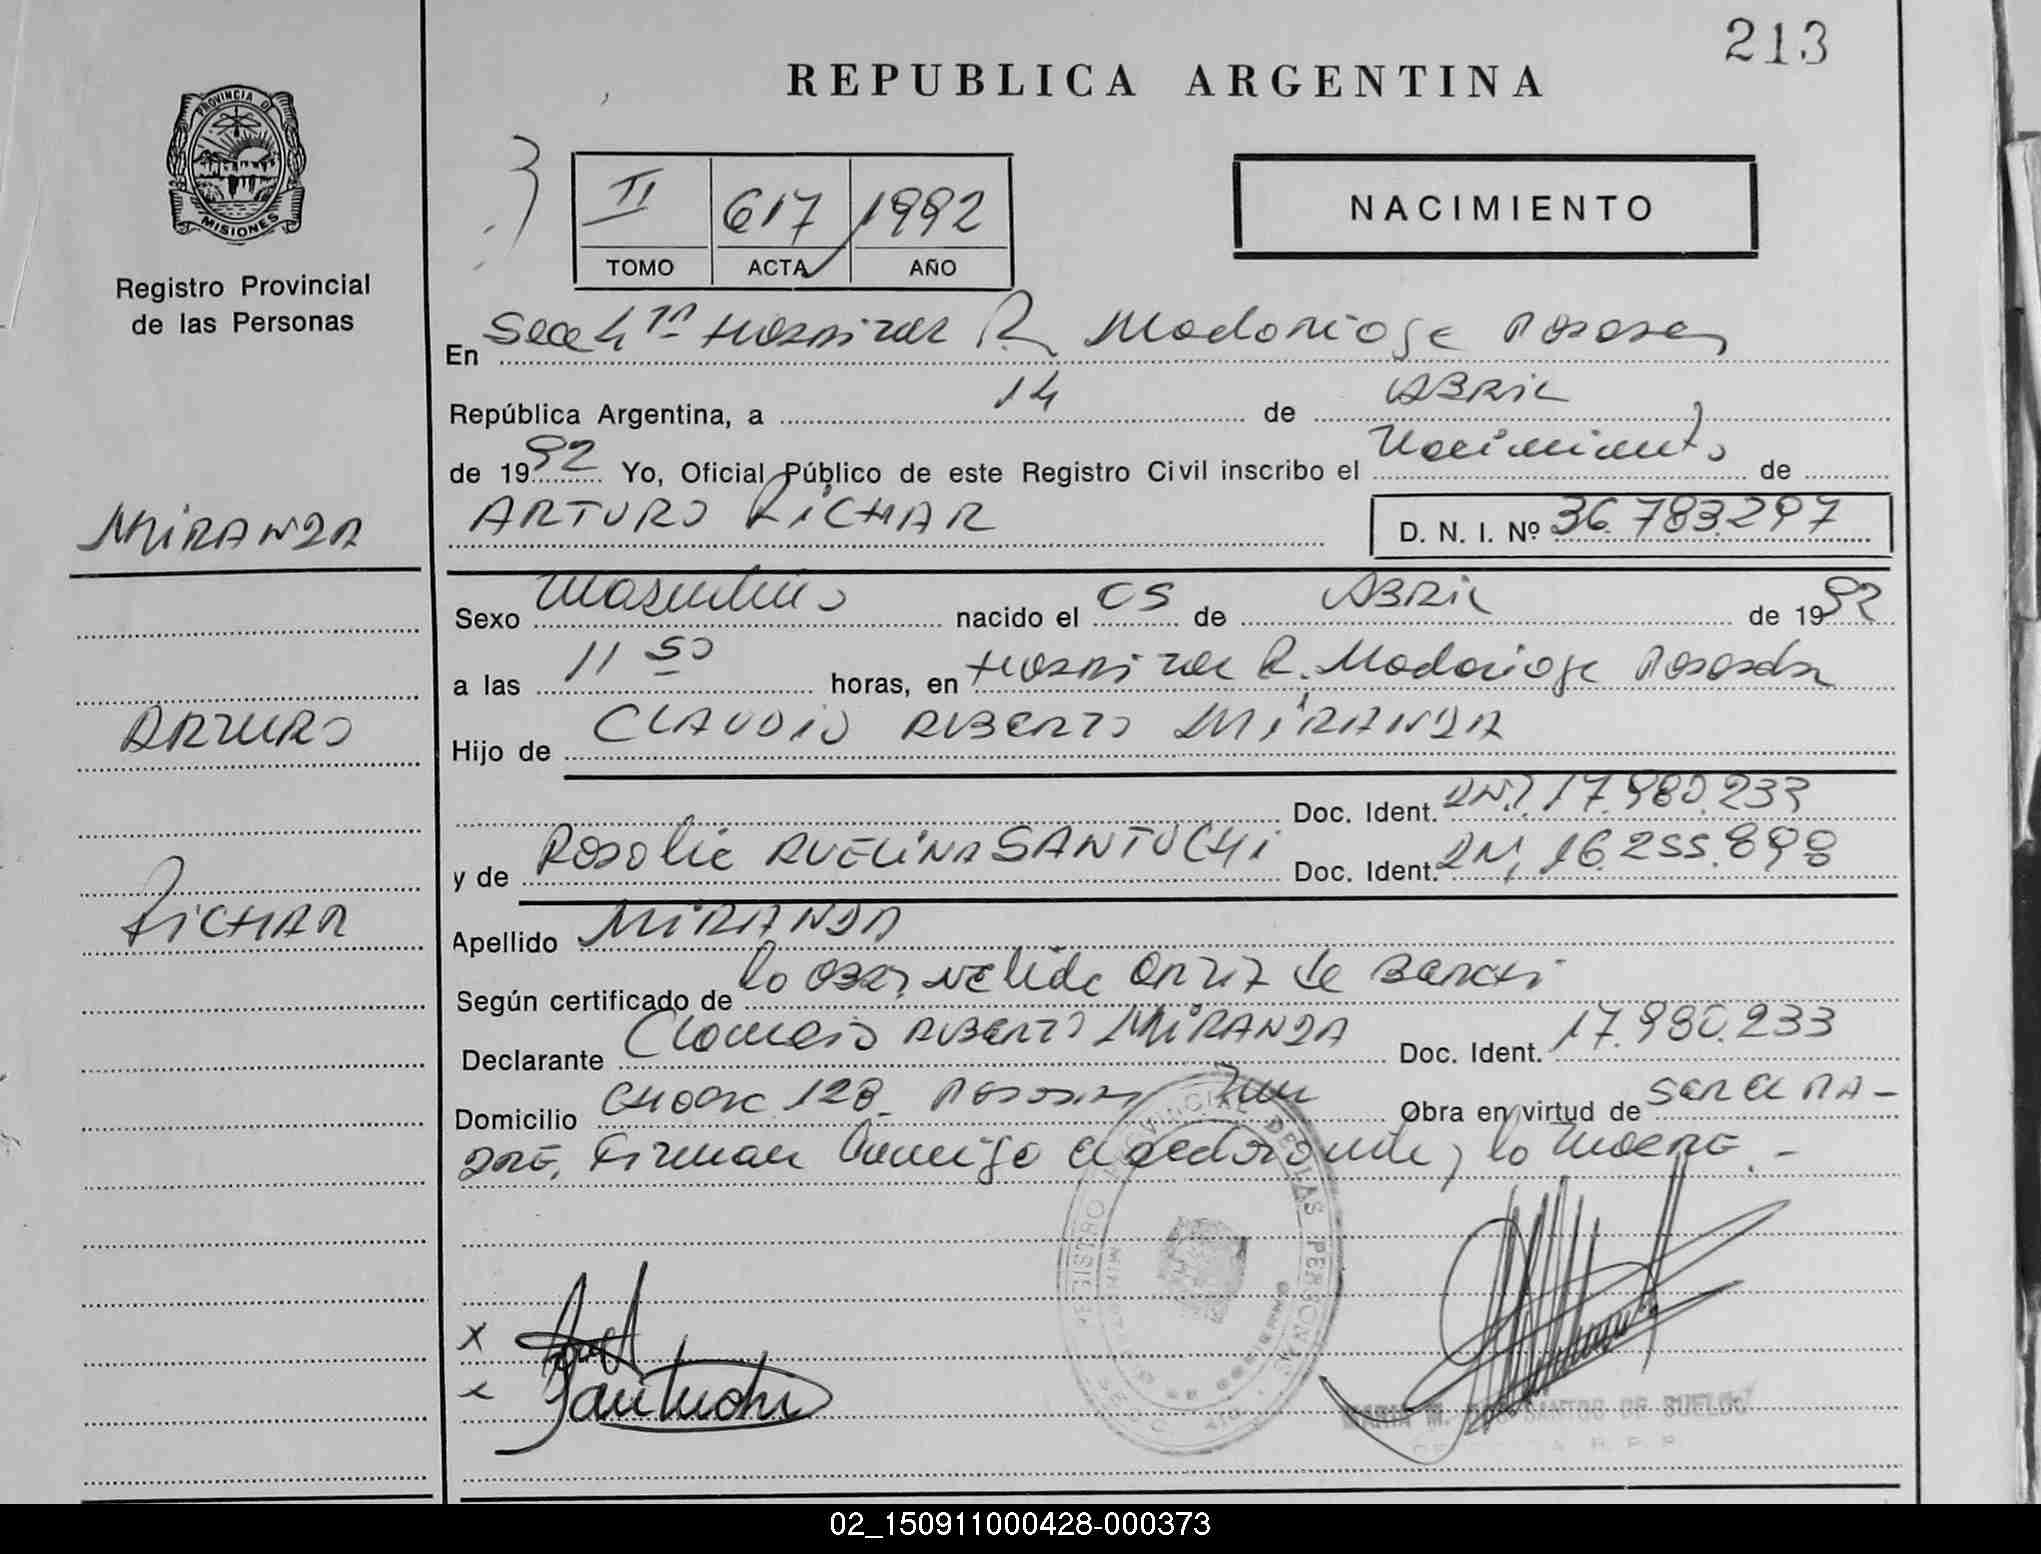 213
REPUBLICA ARGENTINA
PROVINCIA DE
MISIONES
Registro Provincial
de las Personas
II 617 1992
TOMO ACTA AÑO
NACIMIENTO
En Secc 4ta Hospital R. Madariaga Posadas
República Argentina, a 14 de ABRIL
de 1992 Yo, Oficial Público de este Registro Civil inscribo el Nacimiento de
ARTURO RICHAR D. N. I. Nº 36.783.297
MIRANDA
Sexo Masculino nacido el 05 de ABRIL de 1992
a las 11 50 horas, en Hospital R. Madariaga Posadas
ARTURO
Hijo de CLAUDIO RUBERTO MIRANDA
Doc. Ident. DNI 17.980.233
y de Rosalia AVELINA SANTUCHI Doc. Ident. DNI 16.255.898
RICHAR
Apellido MIRANDA
Según certificado de la Obst. Nelida Ortiz de
Declarante Claudio RUBERTO MIRANDA Doc. Ident. 17.980.233
Domicilio 128. Posadas Obra en virtud de SER EL PA-
DRE, Firman Conmigo el declarante y la madre.-
REGISTRO PROVINCIAL DE LAS PERSONAS
MINISTERIO DE GOBIERNO
X
x Santuchi
MARIA M. DOS SANTOS DE SUELDO
R. P. P.
02_150911000428-000373